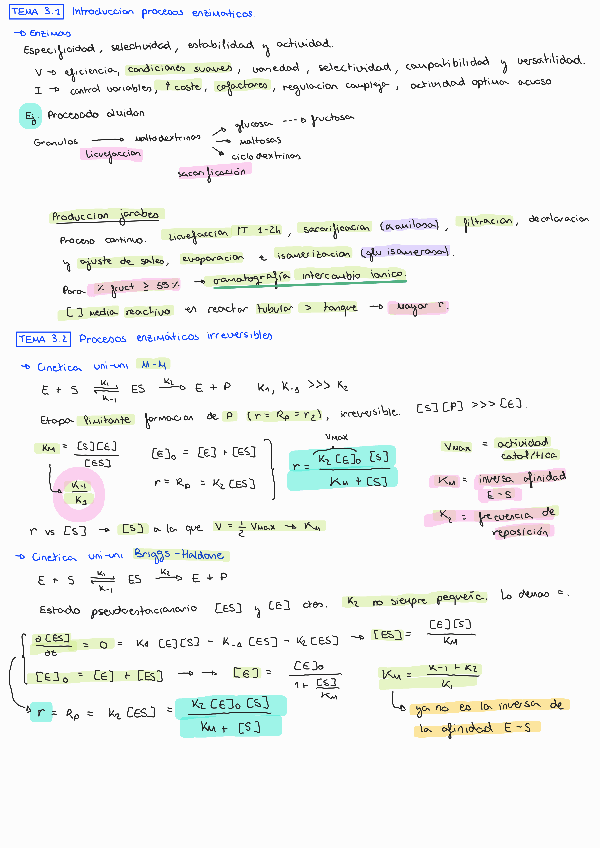 TEMA 3.1 Introducción procesos enzimáticos
→ Enzimas
Especificidad, selectividad, estabilidad y actividad.
V → eficiencia, condiciones suaves, variedad, selectividad, compatibilidad y versatilidad.
I → control variables, ↑ coste, cofactores, regulación compleja, actividad óptima acuosa
Ej Procesado almidón
Gránulos → maltodextrinas → glucosa ---> fructosa
→ maltosas
→ ciclodextrinas
licuefacción
sacarificación
Producción jarabes
Proceso continuo. licuefacción ↑T 1-2h, sacarificación (amilasa), filtración, decoloración
y ajuste de sales, evaporación e isomerización (glu isomerasa).
Para % fruct ≥ 55% → cromatografía intercambio iónico.
[ ] media reactivo en reactor tubular > tanque → mayor r.
TEMA 3.2 Procesos enzimáticos irreversibles
→ Cinética uni-uni M-M
E + S ⇌ ES → E + P K1, K-1 >>> K2
K1 K-1 K2
Etapa limitante formación de P (r = Rp = r2), irreversible. [S][P] >>> [E].
KM = [S][E] / [ES]
K-1 / K1
[E]0 = [E] + [ES]
r = Rp = K2 [ES]
VMAX
r = K2 [E]0 [S] / KM + [S]
VMAX = actividad catalítica
KM = inversa afinidad E-S
K2 = frecuencia de reposición
r vs [S] → [S] a la que V = 1/2 VMAX → KM
→ Cinética uni-uni Briggs-Haldane
E + S ⇌ ES → E + P
K1 K-1 K2
Estado pseudoestacionario [ES] y [E] ctes. K2 no siempre pequeña. Lo demás =.
∂[ES] / ∂t = 0 = K1 [E][S] - K-1 [ES] - K2 [ES] → [ES] = [E][S] / KM
[E]0 = [E] + [ES] → → [E] = [E]0 / 1 + [S] / KM
KM = K-1 + K2 / K1
r = Rp = K2 [ES] = K2 [E]0 [S] / KM + [S]
ya no es la inversa de
la afinidad E-S